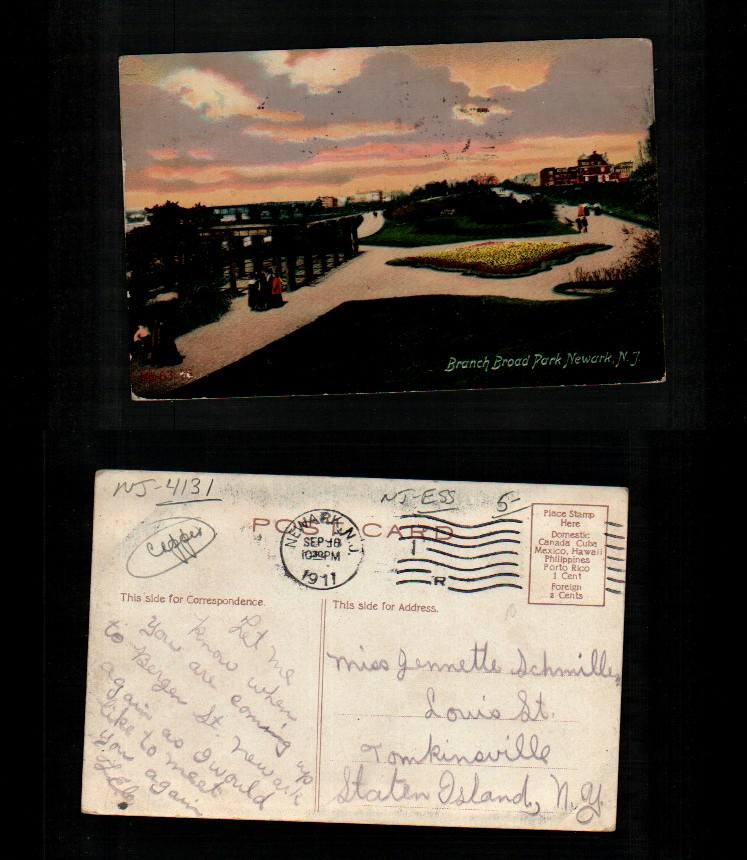 Branch Broad Park Newark, N. J.
NJ-4131
NJ-ESS
5-
POST CARD
NEWARK, N.J.
SEP 18
PM
1911
1
R
Place Stamp
Here
Domestic
Canada Cuba
Mexico, Hawaii
Philippines
Porto Rico
1 Cent
Foreign
2 Cents
This side for Correspondence.
This side for Address.
Let me
know when
You are coming up
to Bergen St. Newark
again as I would
like to meet
you again
Miss Jennette Schmille
Louis St.
Tomkinsville
Staten Island, N.Y.